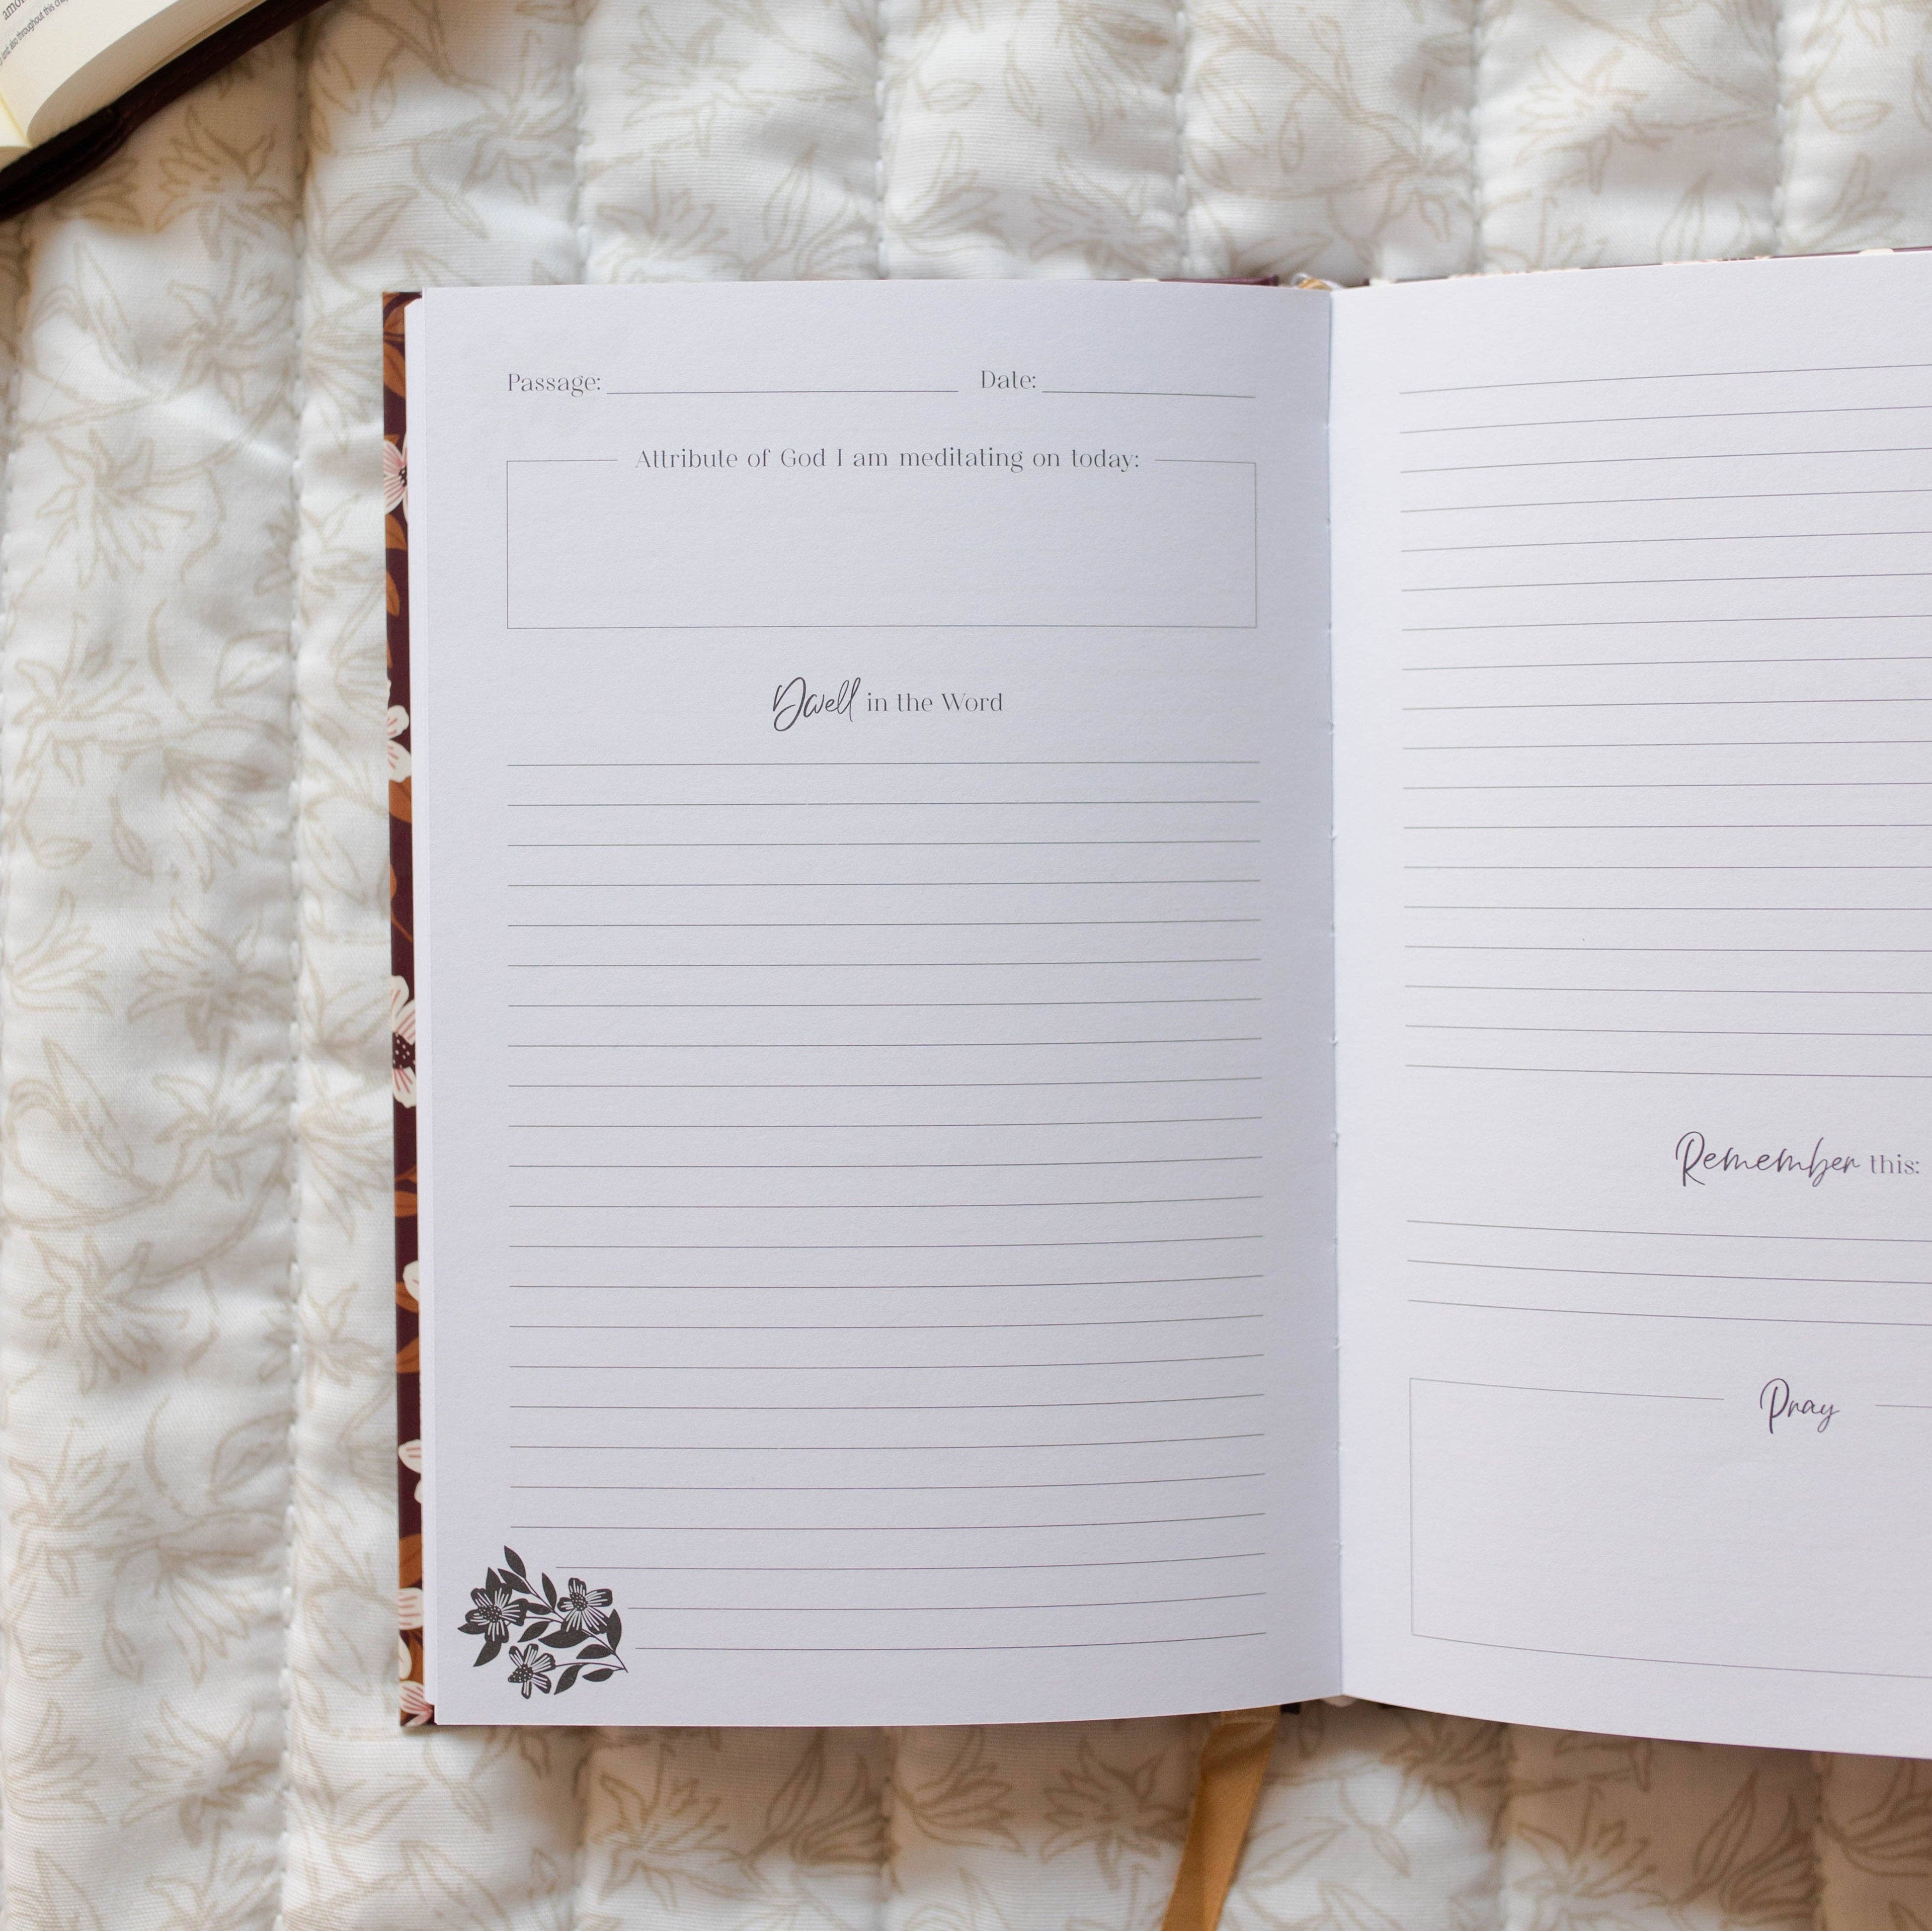 throughout this
Passage: Date:
Attribute of God I am meditating on today:
Dwell in the Word
Remember this:
Pray